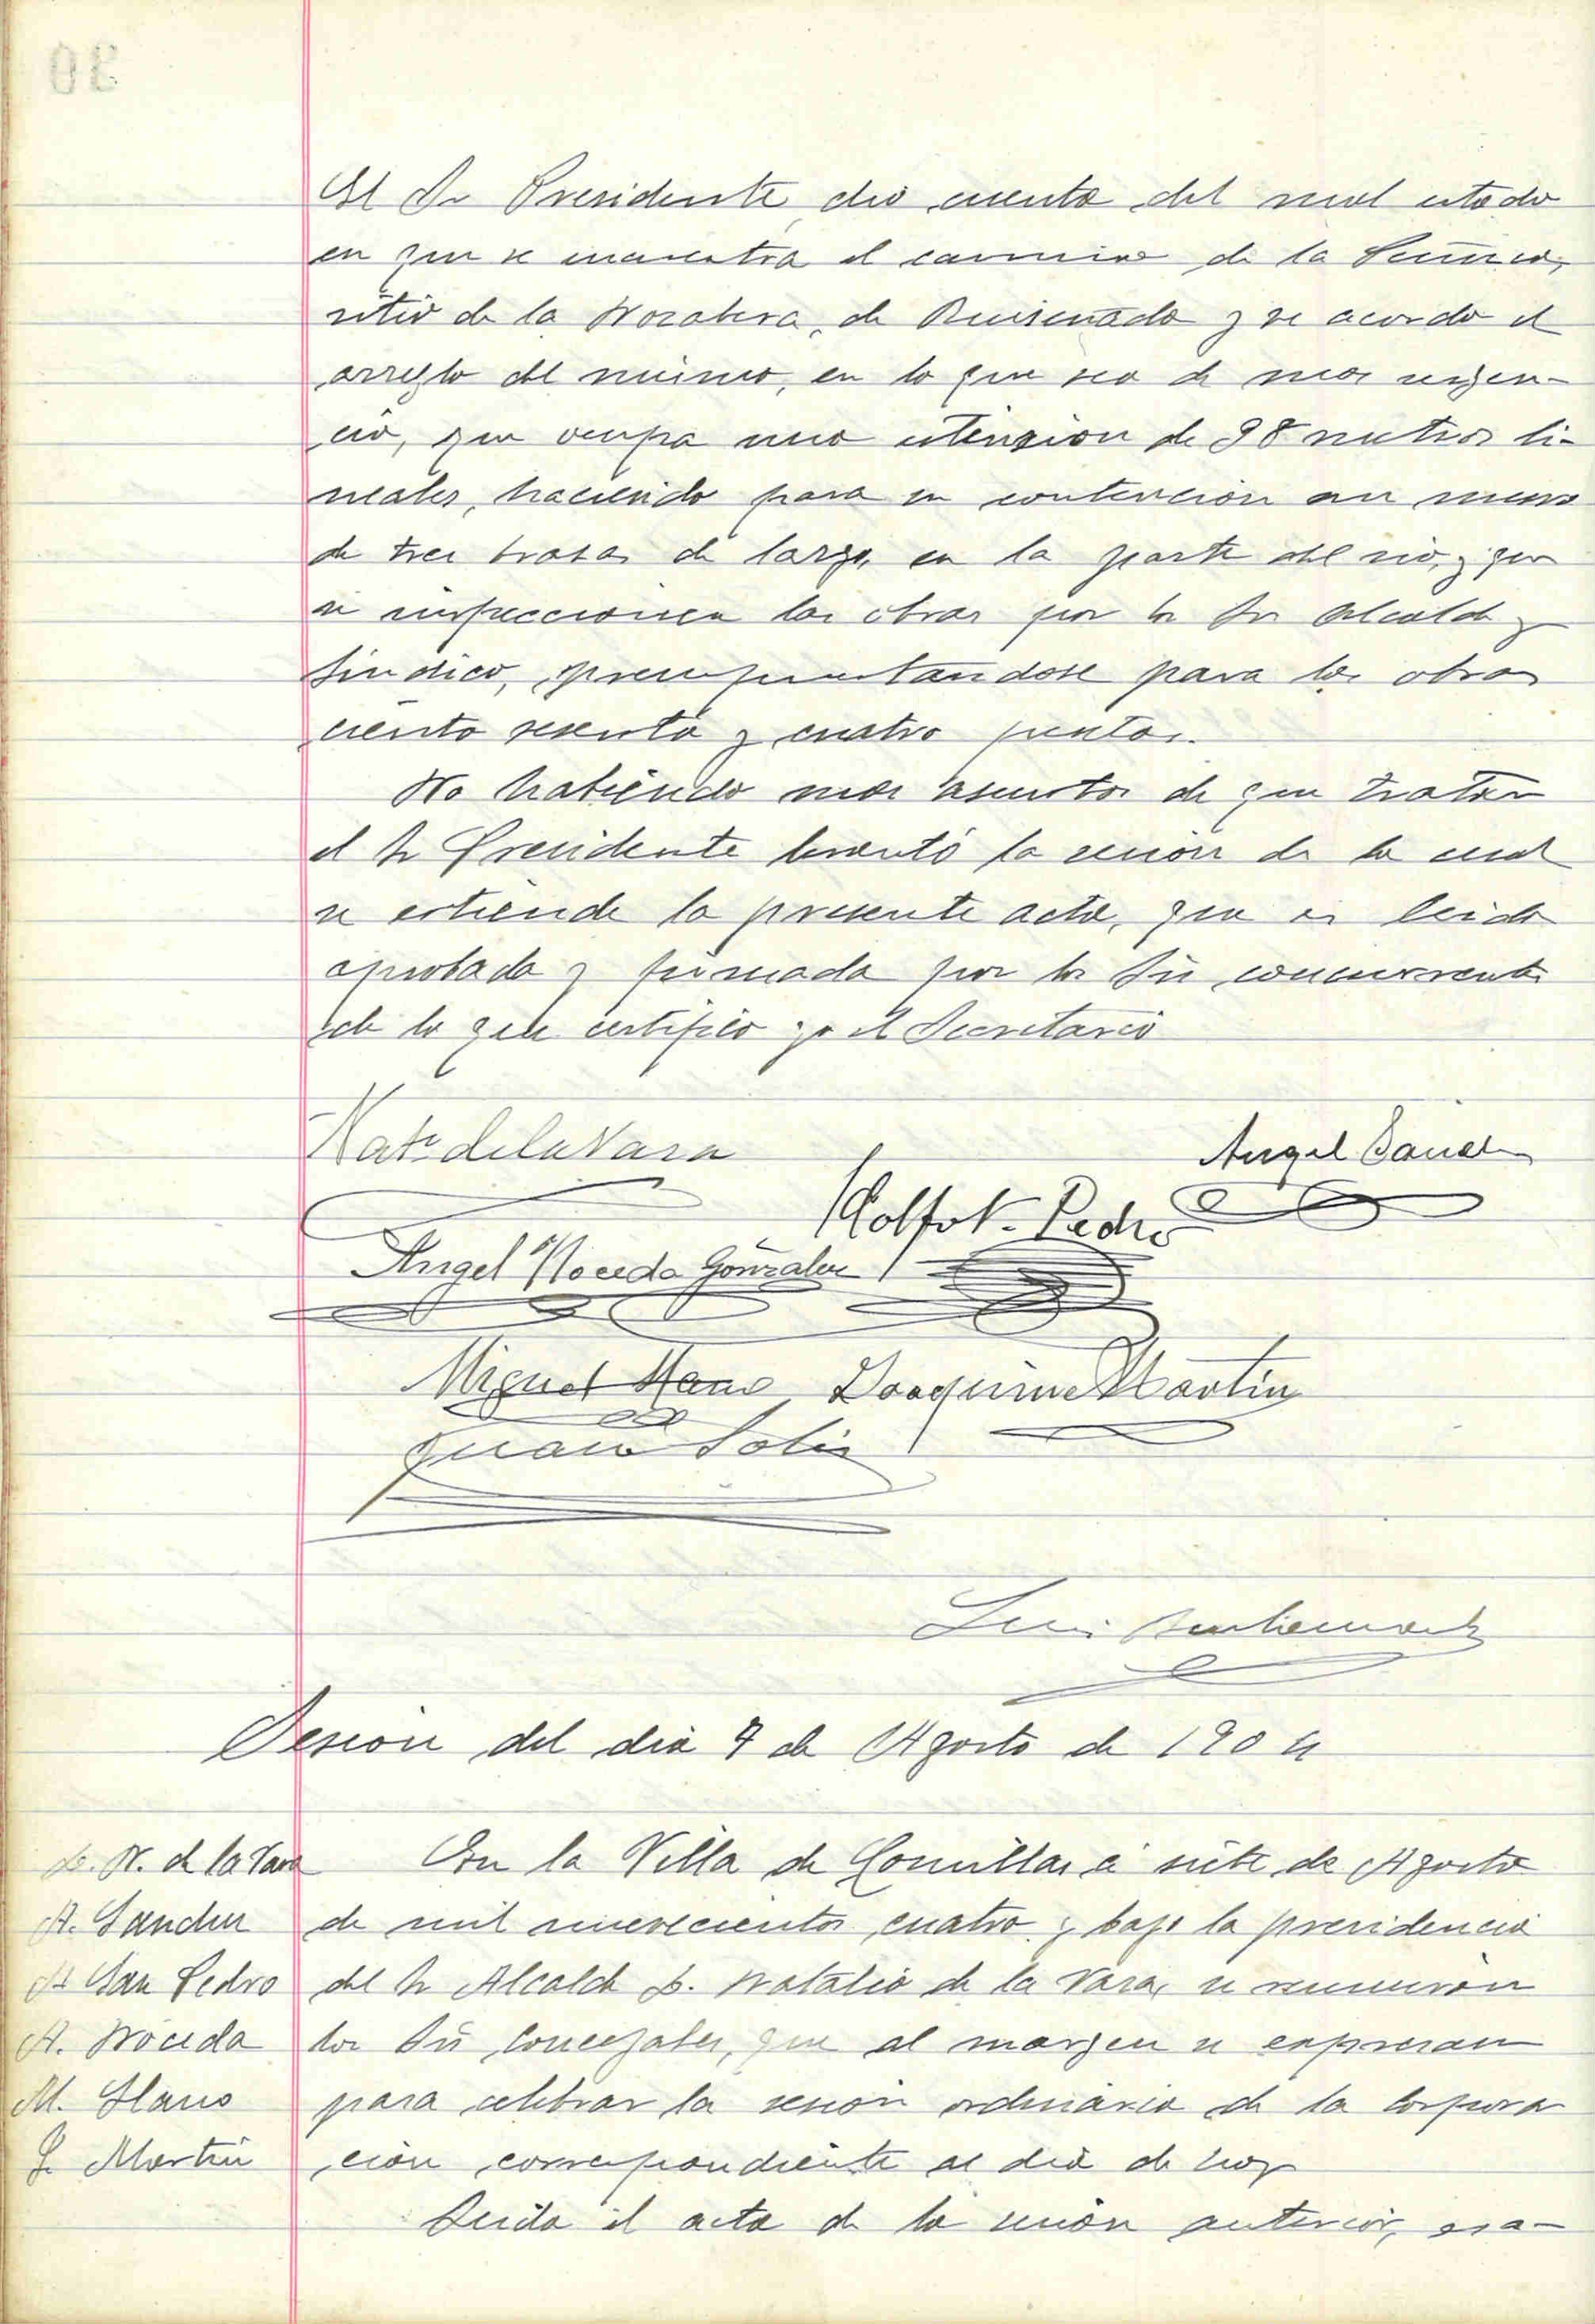 El Sr Presidente dió cuenta del mal estado
en que se encuentra el camino de la
sitio de la de Ruiseñada y se acordo el
arreglo del mismo, en lo que sea de mas urgen-
cia, que ocupa una estension de 98 metros li-
neales, haciendo para su contención un muro
de tres brazas de largo, en la parte del rio, y que
se inspeccionen las obras por los Srs Alcalde y
Sindico, presupuestandose para las obras
ciento sesenta y cuatro pesetas.
No habiendo mas asuntos de que tratar
el Sr Presidente levantó la sesión de la cual
se estiende la presente acta, que es leida
aprobada y firmada por los Srs concurrentes
de lo que certifico yo el Secretario
Nat. de la Vara
Angel Sanchez
Pedro
Angel Noceda González
Miguel Llano Joaquin Martin
Juan Solis
Luis
Sesion del dia 7 de Agosto de 1904
D. N. de la Vara
A. Sanchez
San Pedro
A. Noceda
M. Llano
J. Martin
En la Villa de Comillas á siete de Agosto
de mil novecientos cuatro y bajo la presidencia
del Sr Alcalde D. Natalio de la Vara, se reunieron
los Srs Concejales, que al margen se expresan
para celebrar la sesión ordinaria de la Corpora
ción correspondiente al dia de hoy
Leida el acta de la sesión anterior,